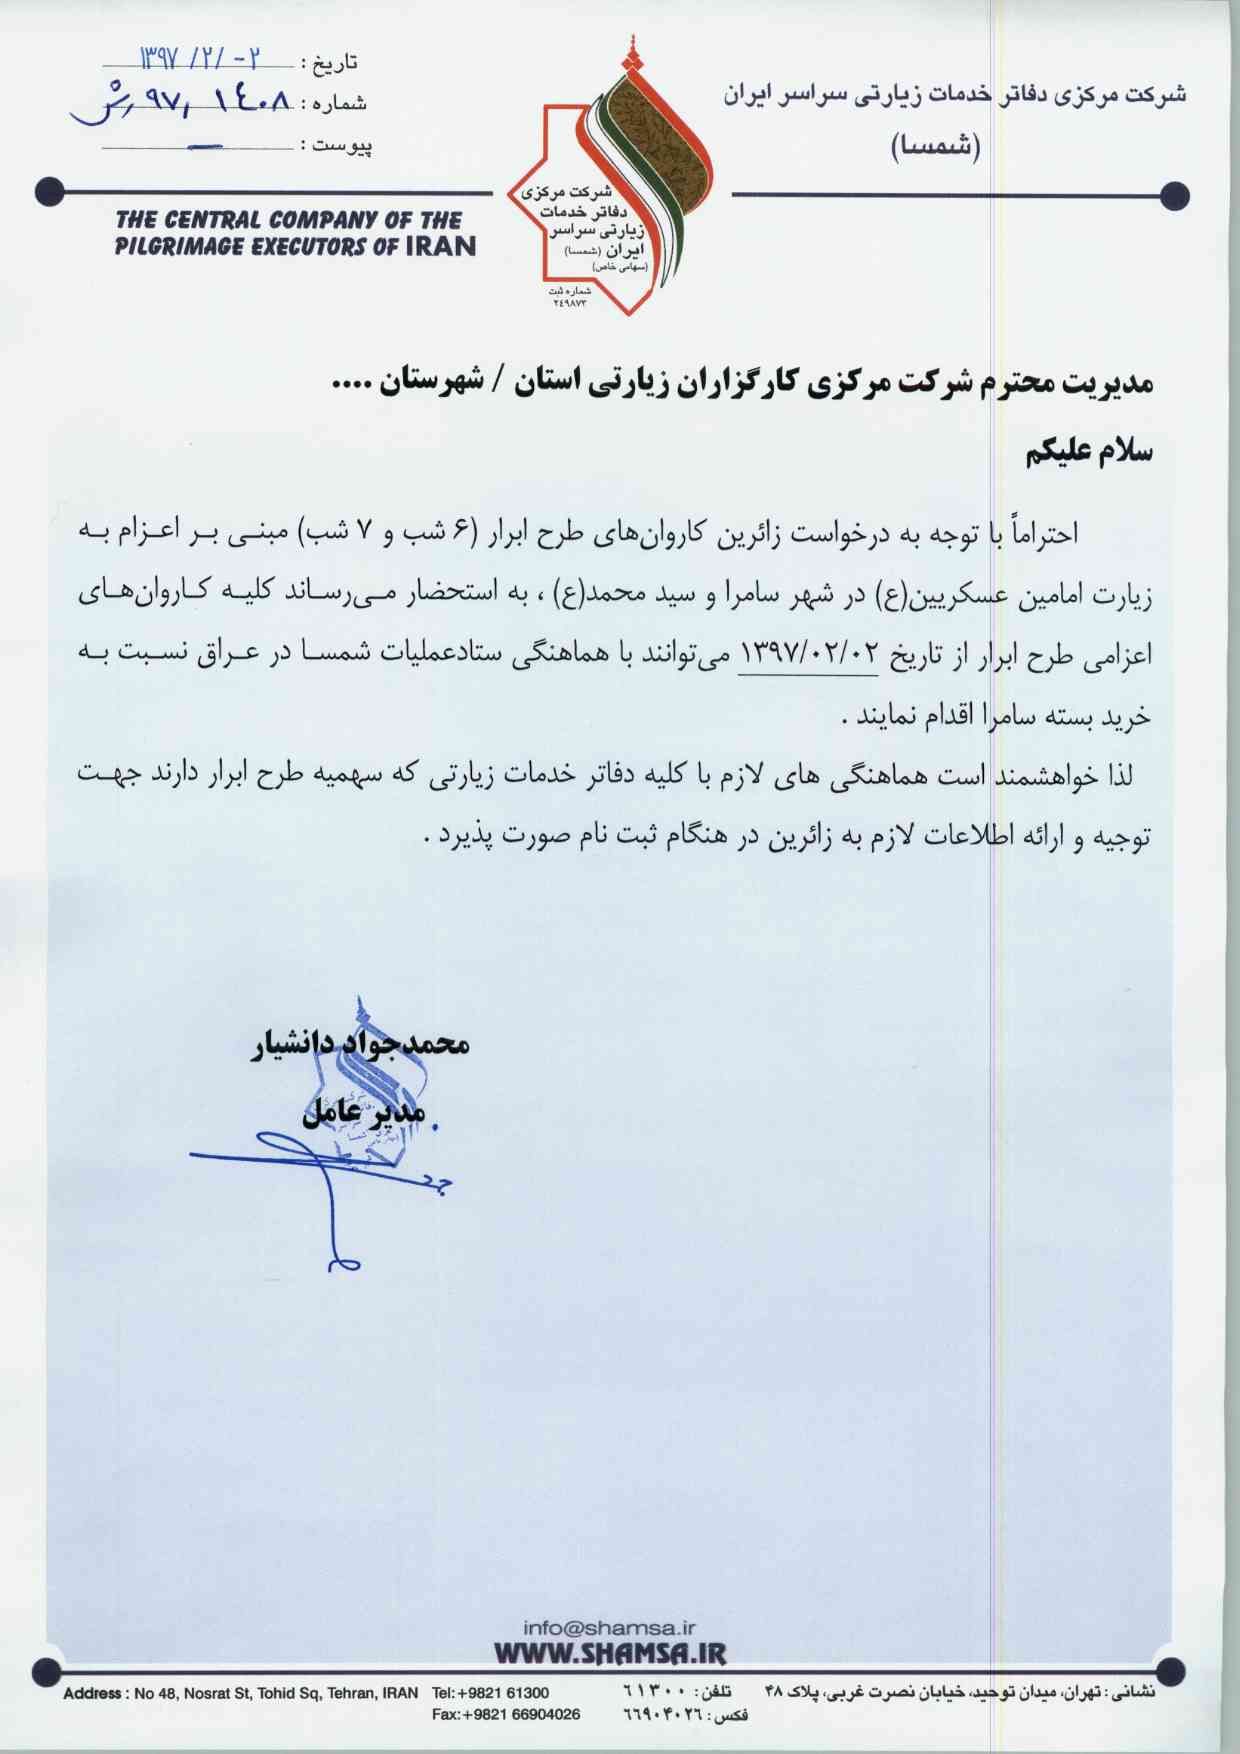 شرکت مرکزی دفاتر خدمات زیارتی سراسر ایران
(شمسا)
تاریخ : ۱۳۹۷/۲/-۲
شماره : ۹۷٫۱۴۰۸ ش
پیوست : —
THE CENTRAL COMPANY OF THE
PILGRIMAGE EXECUTORS OF IRAN
شرکت مرکزی
دفاتر خدمات
زیارتی سراسر
ایران (شمسا)
(سهامی خاص)
شماره ثبت
۲۴۹۸۷۳
مدیریت محترم شرکت مرکزی کارگزاران زیارتی استان / شهرستان ....
سلام علیکم
احتراماً با توجه به درخواست زائرین کاروان‌های طرح ابرار (۶ شب و ۷ شب) مبنی بر اعزام به
زیارت امامین عسکریین(ع) در شهر سامرا و سید محمد(ع) ، به استحضار می‌رساند کلیه کاروان‌های
اعزامی طرح ابرار از تاریخ ۱۳۹۷/۰۲/۰۲ می‌توانند با هماهنگی ستادعملیات شمسا در عراق نسبت به
خرید بسته سامرا اقدام نمایند .
لذا خواهشمند است هماهنگی های لازم با کلیه دفاتر خدمات زیارتی که سهمیه طرح ابرار دارند جهت
توجیه و ارائه اطلاعات لازم به زائرین در هنگام ثبت نام صورت پذیرد .
محمدجواد دانشیار
مدیر عامل
info@shamsa.ir
WWW.SHAMSA.IR
نشانی : تهران، میدان توحید، خیابان نصرت غربی، پلاک ۴۸ تلفن : ۶۱۳۰۰
فکس : ۶۶۹۰۴۰۲۶
Address : No 48, Nosrat St, Tohid Sq, Tehran, IRAN Tel:+9821 61300
Fax:+9821 66904026